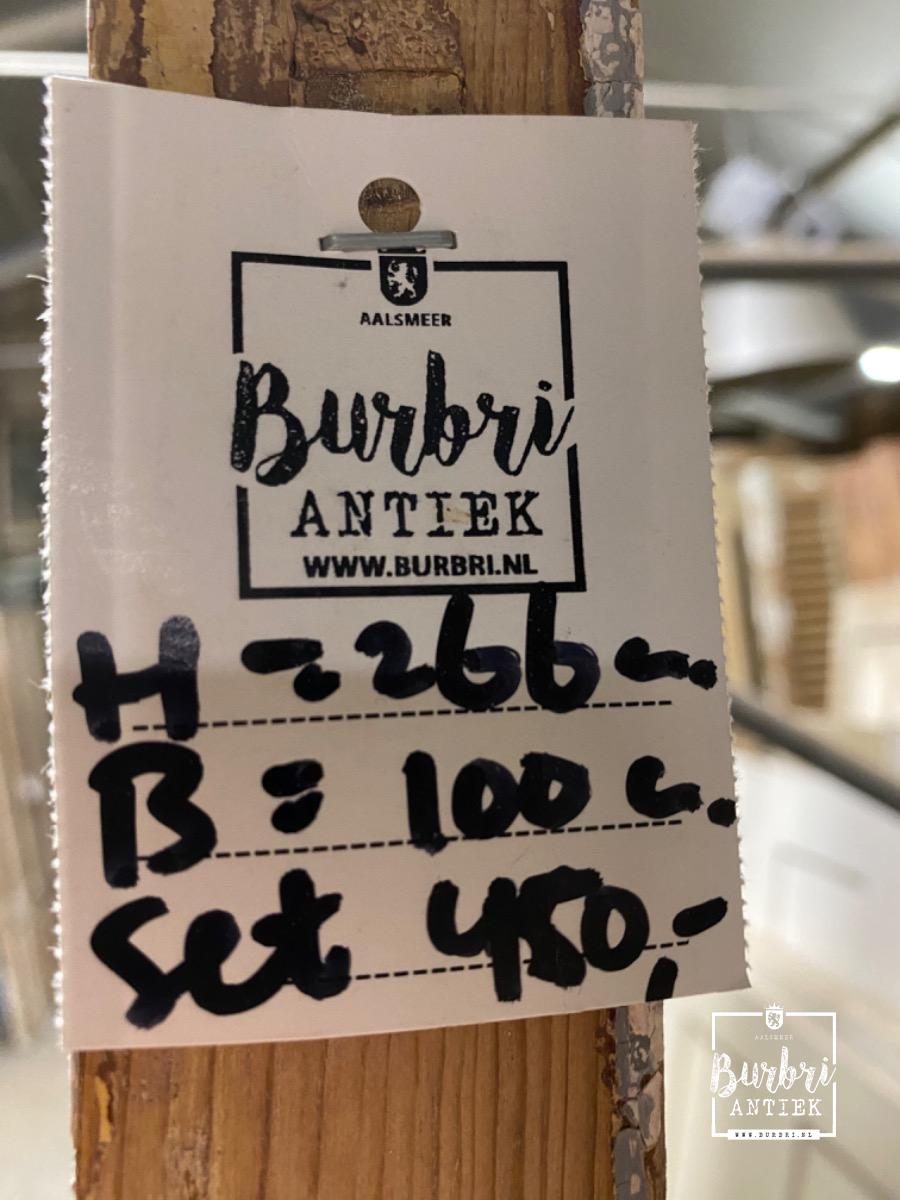 AALSMEER
Burbri
ANTIEK
WWW.BURBRI.NL
H = 266 cm.
B = 100 cm.
Set 450,-
AALSMEER
Burbri
ANTIEK
WWW.BURBRI.NL